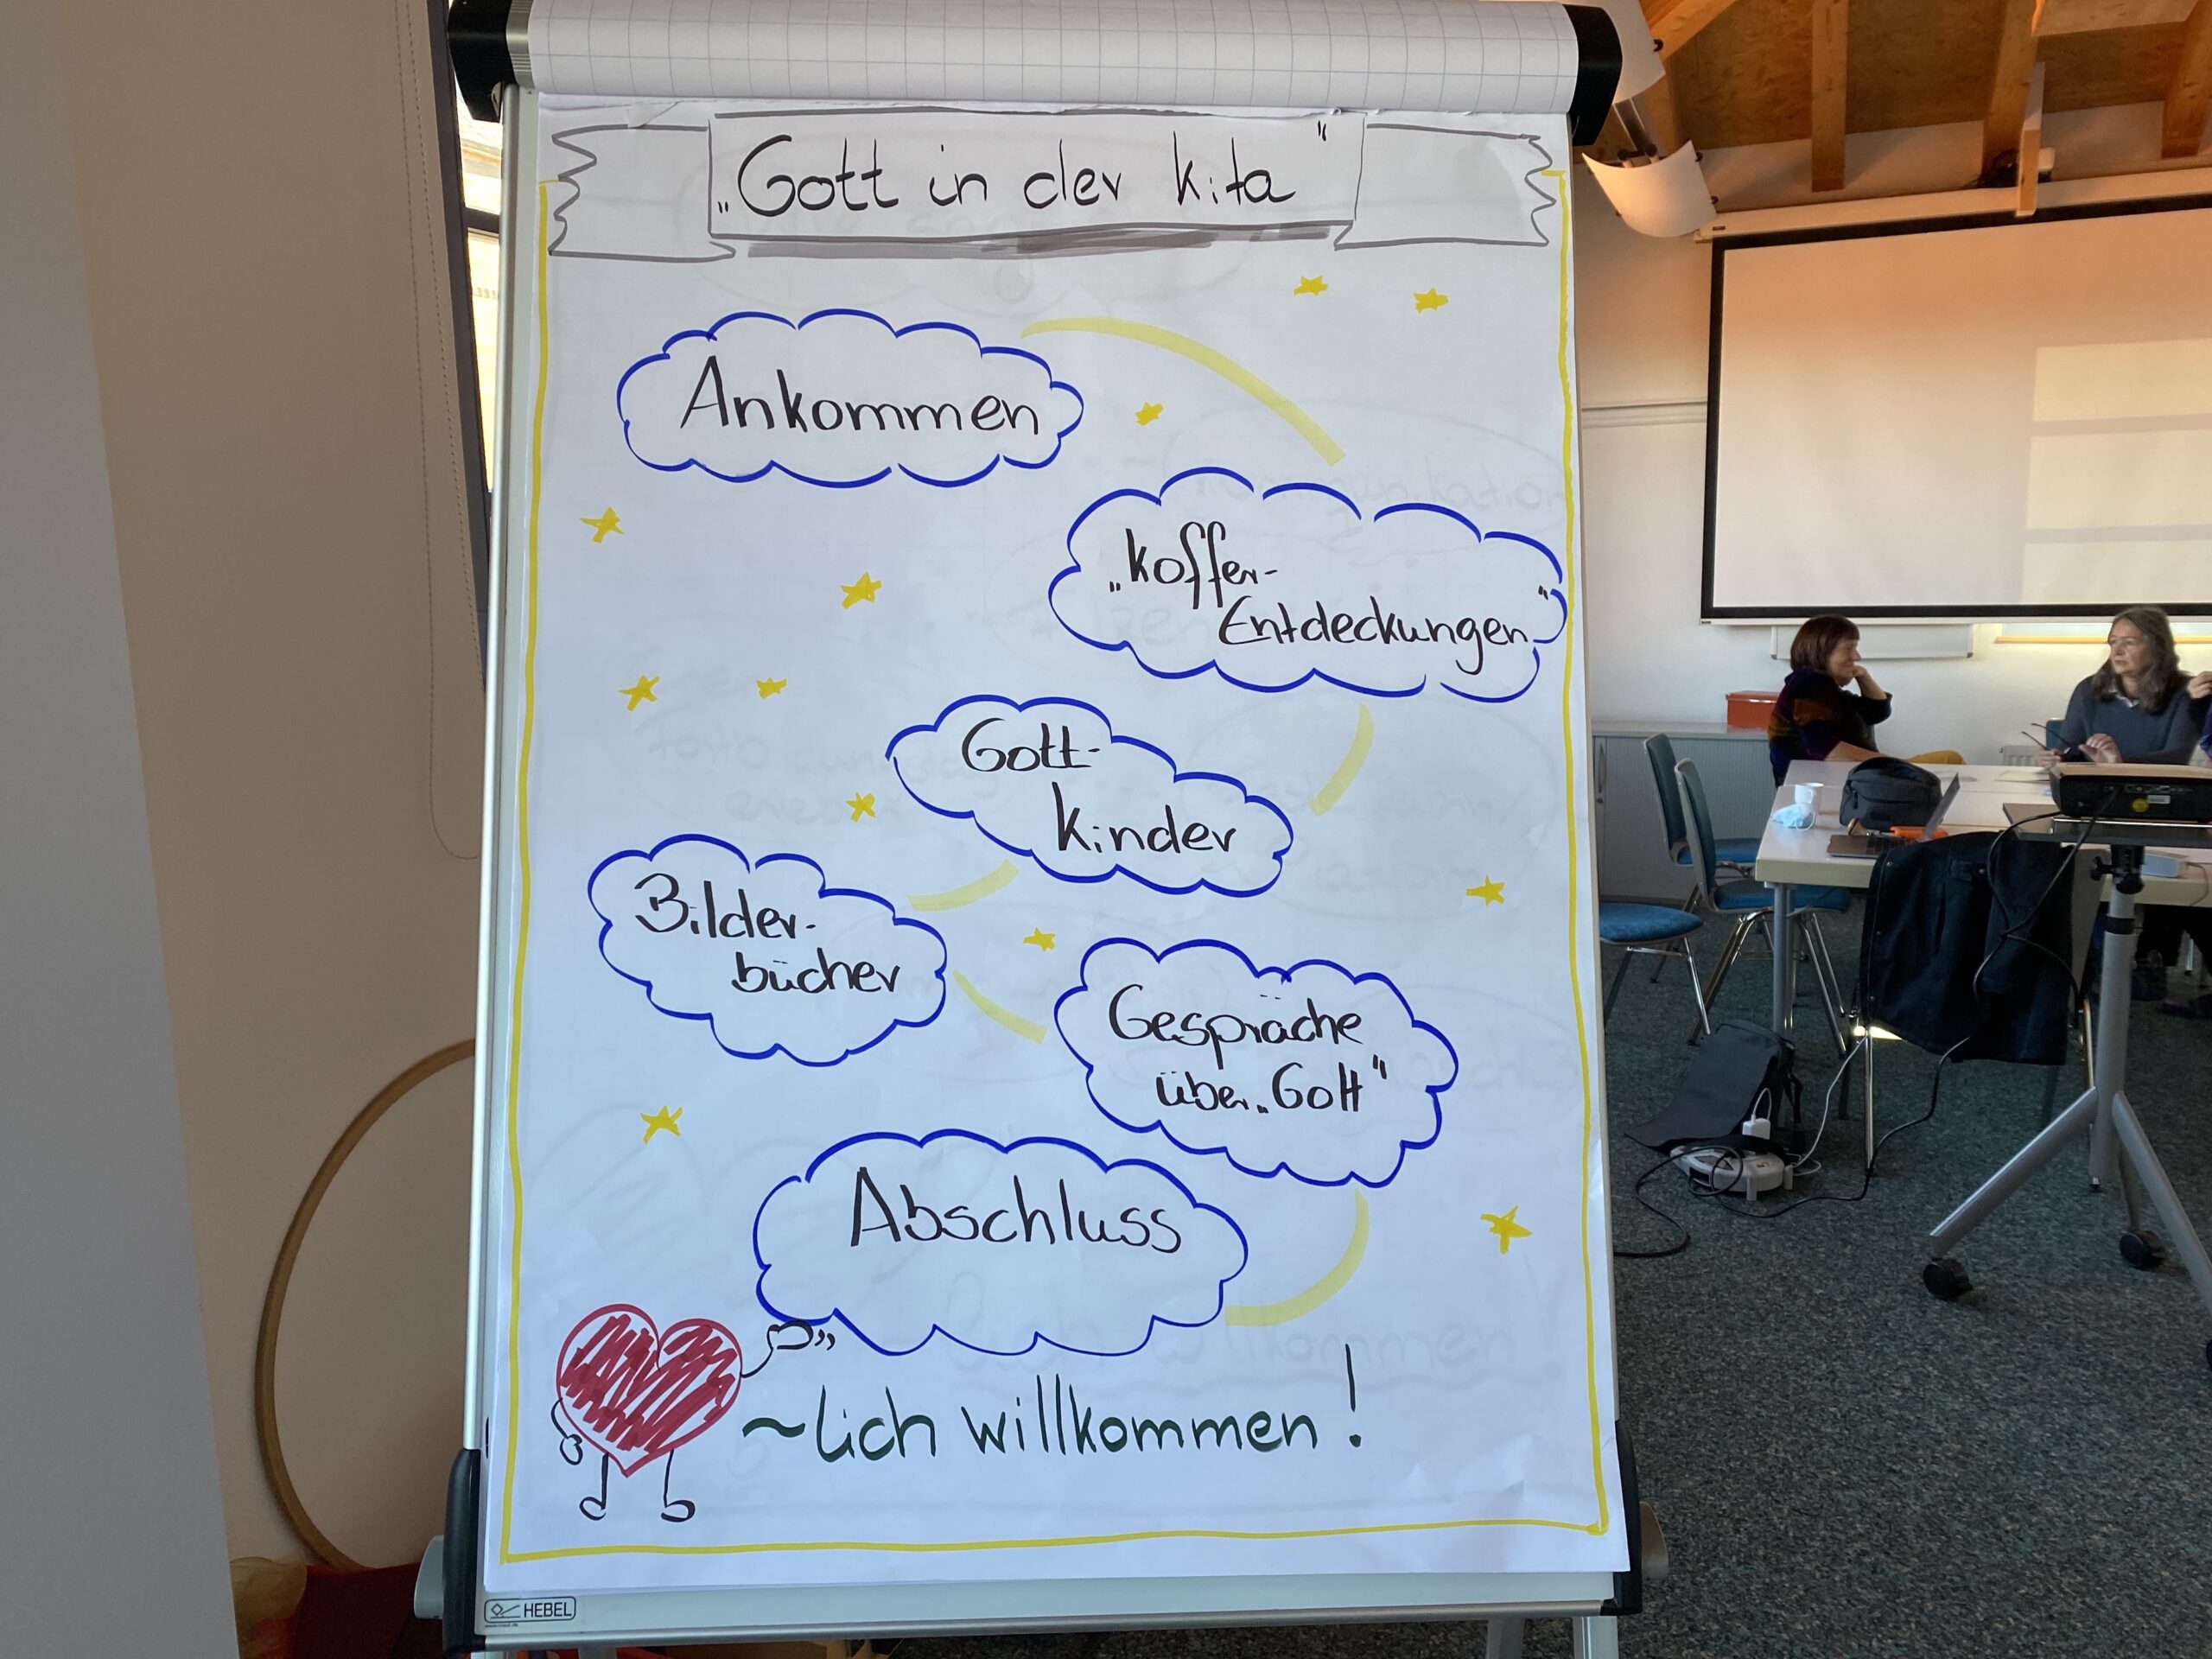 „Gott in der Kita“
Ankommen
„Koffer-
Entdeckungen“
Gott-
kinder
Bilder-
bücher
Gespräche
über „Gott“
Abschluss
~lich willkommen!
HEBEL